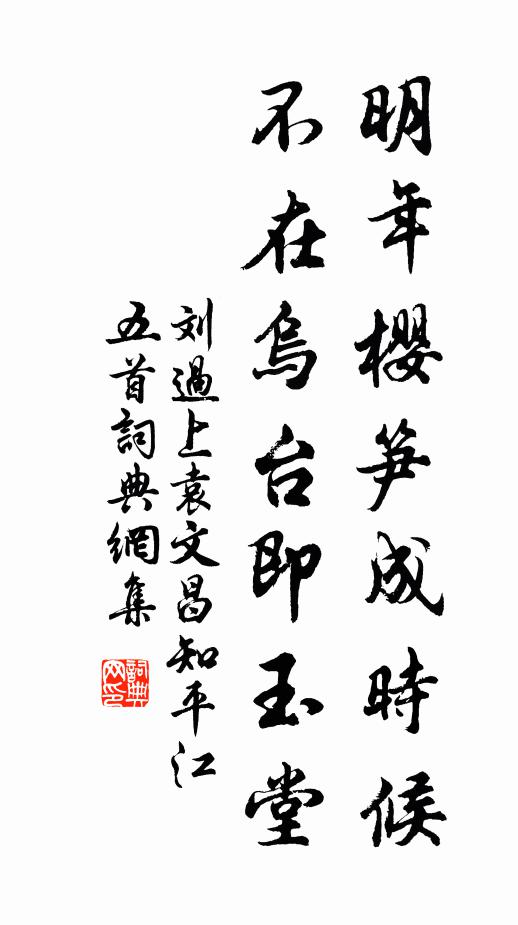 明年櫻笋成時候
不在烏台即玉堂
刘過上袁文昌知平江
五首詞典網集
詞典
网印